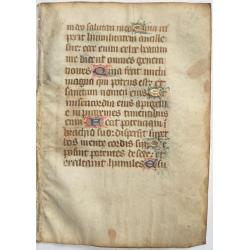 meo salutari meo Quia res
pexit humilitatem ancille
sue: ecce enim ex hoc beatam
me dicent omnes genera
nones Quia fecit michi
magna qui potens est: et
sanctum nomen eius Et
misericordia eius a progenie
in progenies timentibus
eum Fecit potenciam in
brachio suo: dispersit super
bos mente cordis sui De
posuit potentes de sede: et
exaltavit humiles Esu